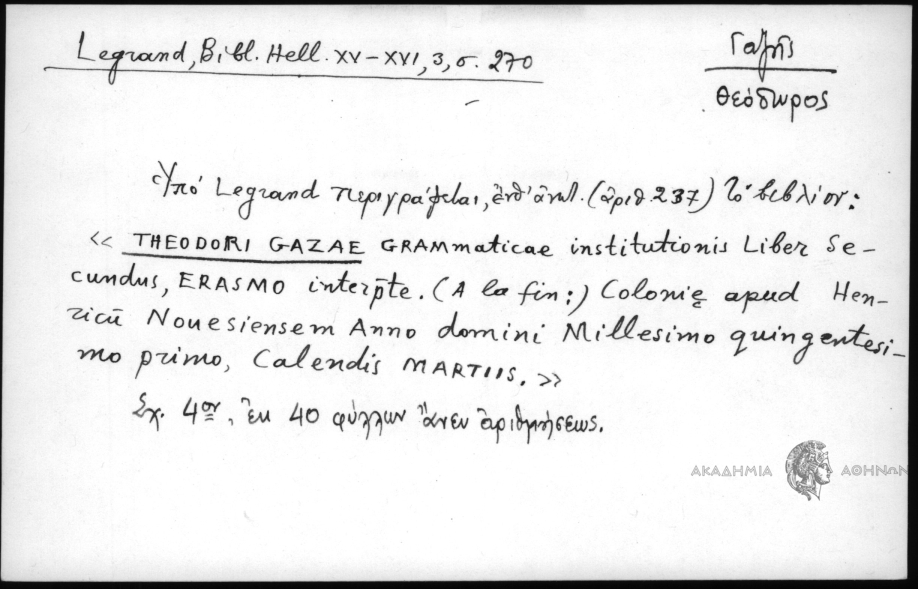 Legrand, Bibl. Hell. XV–XVI, 3, σ. 270
Γαζῆς
Θεόδωρος
Ὑπό Legrand περιγράφεται, ἐνθ' ἀνωτ. (ἀριθ. 237) τὸ βιβλίον:
« THEODORI GAZAE GRAMmaticae institutionis Liber Se-
cundus, ERASMO interp̄te. (A la fin:) Colonię apud Hen-
ricū Nouesiensem Anno domini Millesimo quingentesi-
mo primo, Calendis MARTIIS. »
Σχ. 4ον, ἐκ 40 φύλλων ἄνευ ἀριθμήσεως.
ΑΚΑΔΗΜΙΑ ΑΘΗΝΩΝ